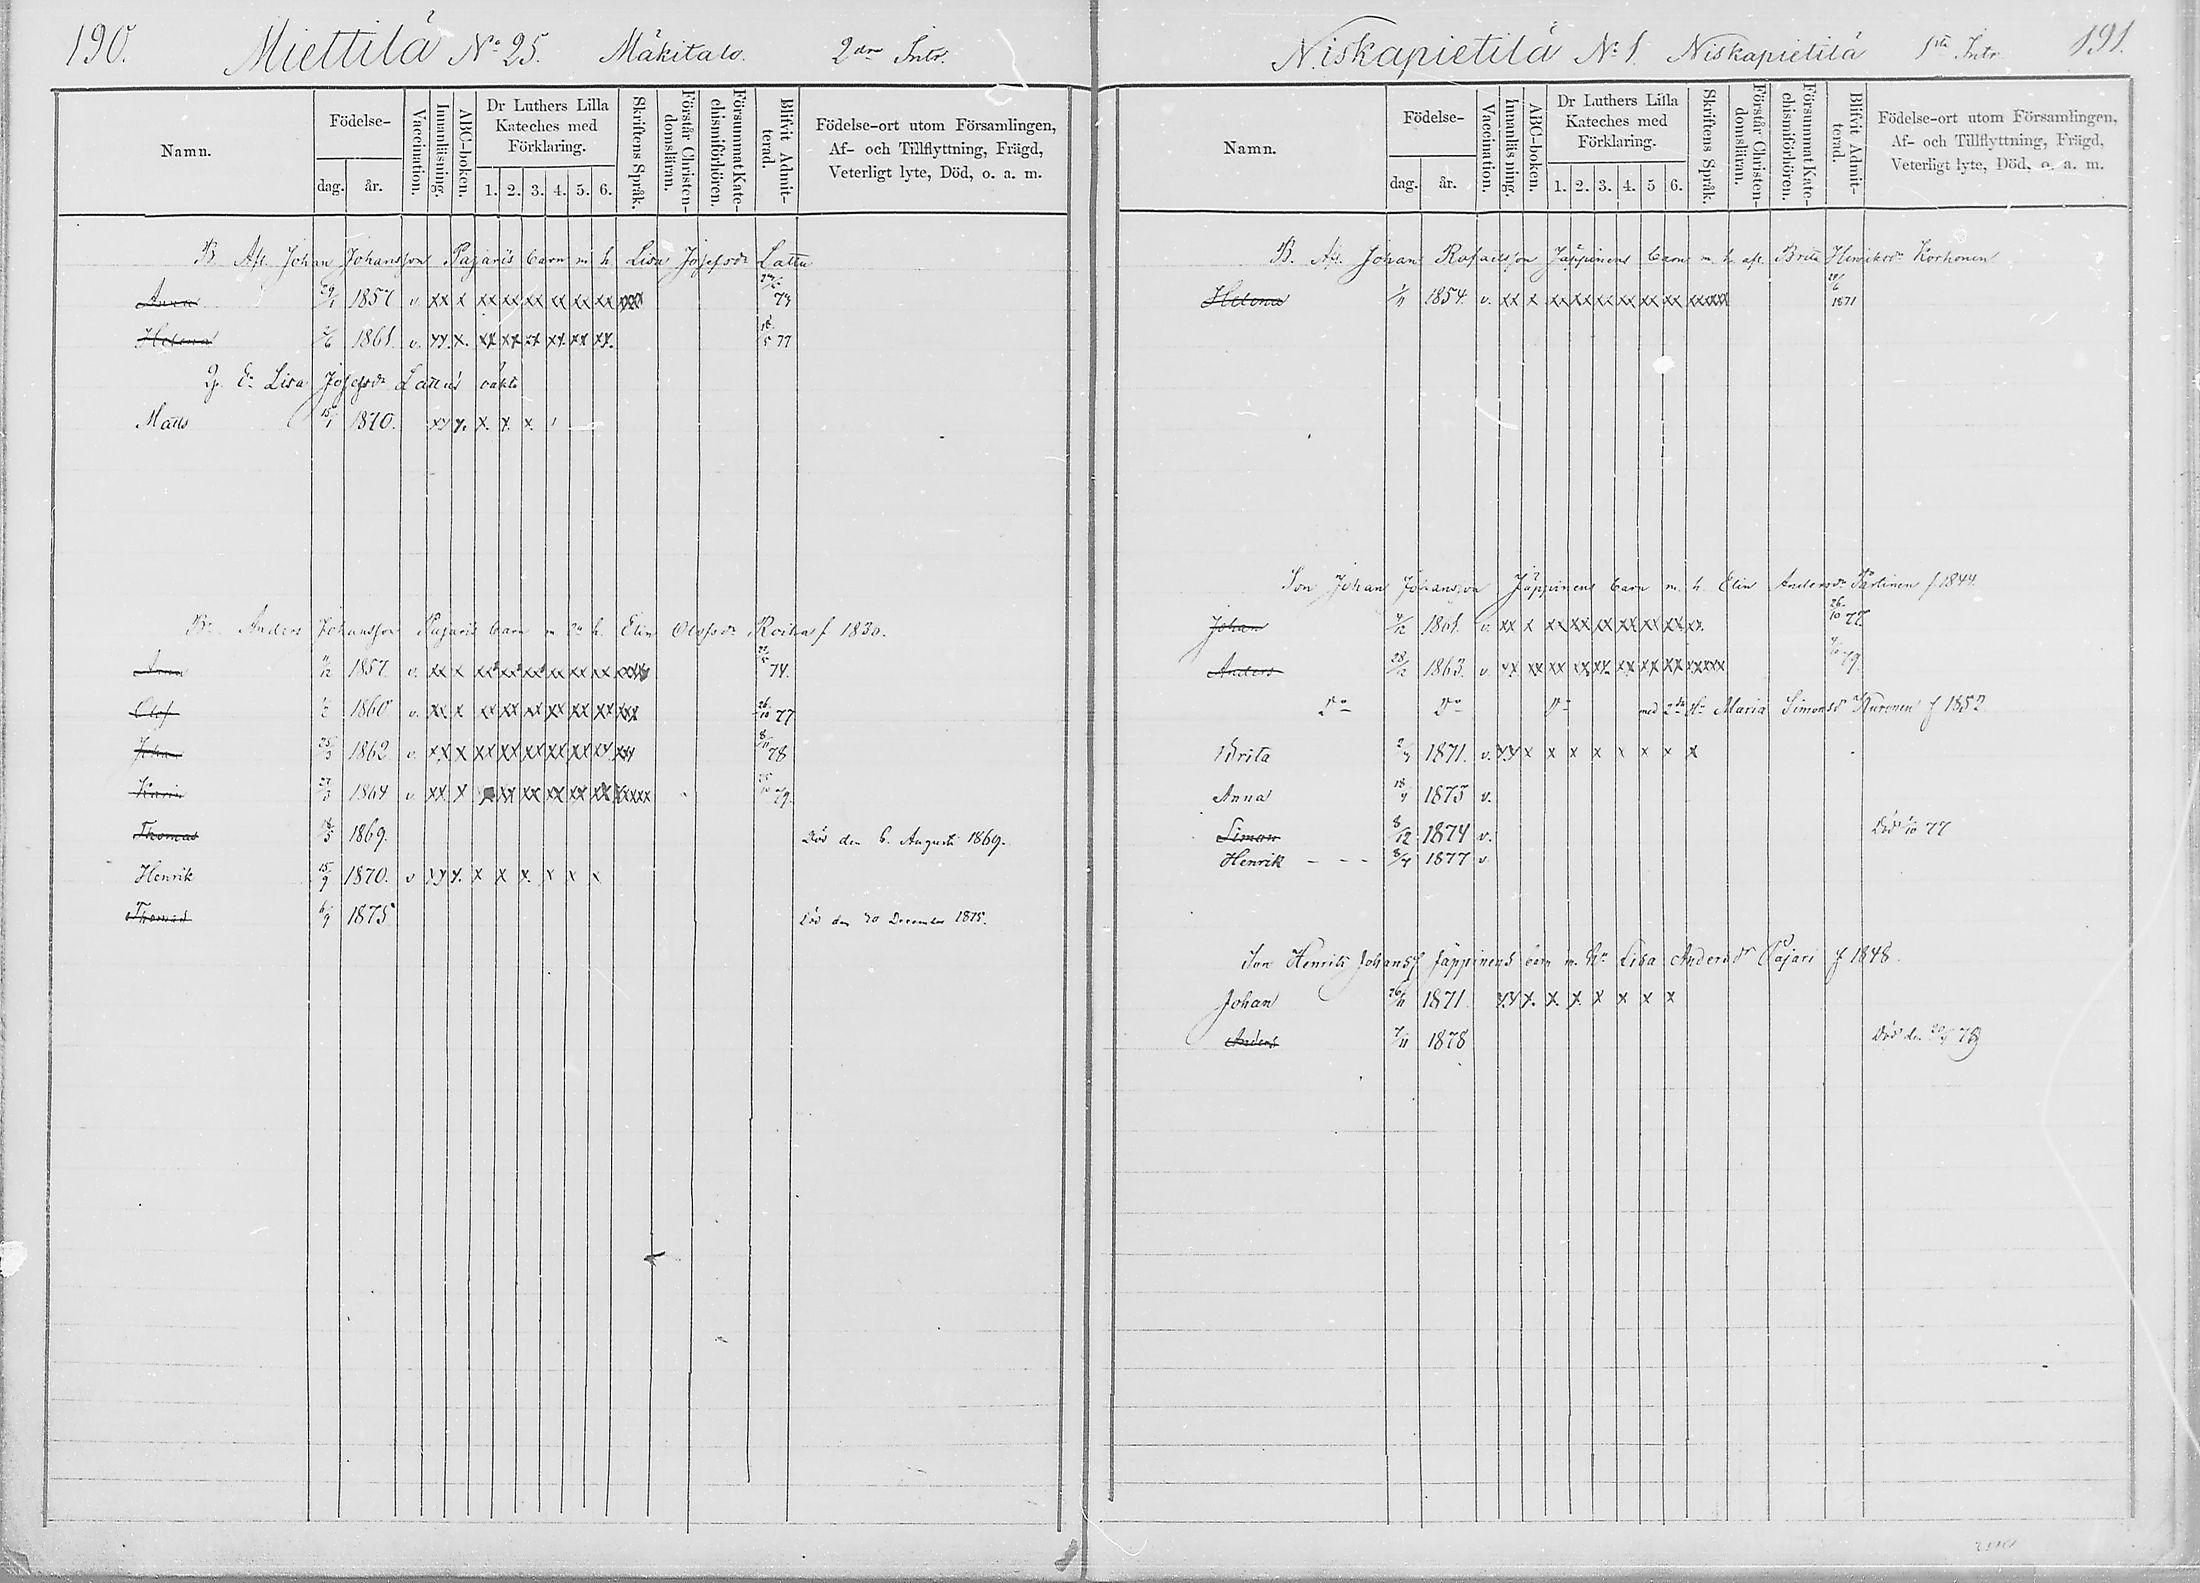 190. Miettilä No 25. Mäkitalo. 2dra Intr.
Namn.
Födelse-
dag. år.
Vaccination.
Innanläsning.
ABC-boken.
Dr Luthers Lilla
Kateches med
Förklaring.
1. 2. 3. 4. 5. 6.
Skriftens Språk.
Förstår Christen-
domsläran.
Försummat Kate-
chismiförhören.
Blifvit Admit-
terad.
Födelse-ort utom Församlingen,
Af- och Tillflyttning, Frägd,
Veterligt lyte, Död, o. a. m.
B. Afl. Johan Johansson Pajaris barn m. h. Lisa Josefsdr Lattu
Anna 29/1 1857 v. xx x xx xx xx xx xx xx xxx 73
Helena 1861. v. xx x. xx xx xx xx xx xx. 18/5 77
Lisa Josefsdr Lattus oäkta
Matts 15/1 1870. xx x. x. x. x.
Br. Anders Johansson Pajaris barn m. h. Elin Olofsdr Roiha f 1830.
Anna 1857. v. xx x xx xx xx xx xx xx xxx 74.
Olof 1860 v. xx x xx xx xx xx xx xx xxx 26/10 77
Johan 25/3 1862 v. xx x xx xx xx xx xx xx xxx 8/11 78
Karin 27/3 1864 v. xx x xx xx xx xx xx xxxxx 79.
Thomas 18/5 1869. Död den 6. Augusti 1869.
Henrik 15/9 1870. v xx x. x x x. x x x
Thomas 6/9 1875 Död den 30 December 1875.
Niskapietilä No 1. Niskapietilä 1sta Intr. 191.
Namn.
Födelse-
dag. år.
Vaccination.
Innanläsning.
ABC-boken.
Dr Luthers Lilla
Kateches med
Förklaring.
1. 2. 3. 4. 5 6.
Skriftens Språk.
Förstår Christen-
domsläran.
Försummat Kate-
chismiförhören.
Blifvit Admit-
terad.
Födelse-ort utom Församlingen,
Af- och Tillflyttning, Frägd,
Veterligt lyte, Död, o. a. m.
B. Afl. Johan Rafaelsson Jäppinens barn m. h. afl. Brita Henriksdr Korhonen
Helena 1/11 1854. v. xx x xx xx xx xx xx xx xxxxx 1871
Son Johan Johansson Jäppinens barn m. h. Elin Andersdr Pärtinen f. 1844.
Johan 1861. v. xx x xx xx xx xx xx xx xx. 26/10 77.
Anders 28/12 1863. v. xx xx xx xx xx xx xx xx xxxxx 79.
Do Do Do med 2dra H. Maria Simonsdr Kuronen f 1852
Brita 1871. v. xx x x x x x x x x
Anna 18/4 1873 v.
Simon 8/12 1874 v. Död 1/10 77
Henrik - - - 8/4 1877 v
Son Henrik Johanss Jäppinens barn m. h. Lisa Andersdr Pajari f 1848.
Johan 26/11 1871. xx x. x. x. x x x x
Anders 7/11 1878 Död den 79